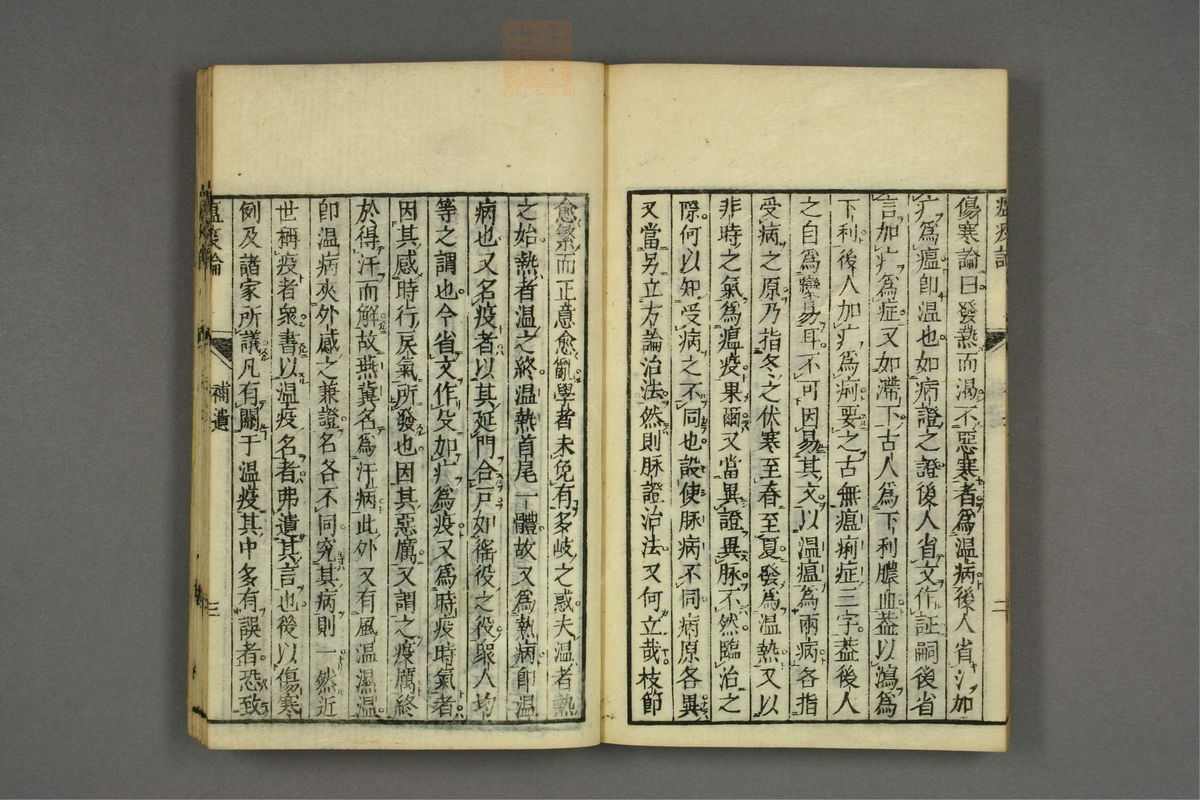 傷寒論曰發熱而渴不惡寒者爲温病後人省氵加
疒爲瘟卽温也如病證之證後人省文作証嗣後省
言加疒爲症又如滯下古人爲下利膿血葢以瀉爲
下利後人加疒爲痢要之古無瘟痢症三字葢後人
之自爲變易耳不可因易其文以温瘟爲兩病各指
受病之原乃指冬之伏寒至春至夏發爲温熱又以
非時之氣爲瘟疫果爾又當異證異脉不然臨治之
際何以知受病之不同也設使脉病不同病原各異
又當另立方論治法然則脉證治法又何立哉枝節
二
愈繁而正意愈亂學者未免有多岐之惑夫温者熱
之始熱者温之終温熱首尾一體故又爲熱病卽温
病也又名疫者以其延門合戸如徭役之役衆人均
等之謂也今省文作殳加疒爲疫又爲時疫時氣者
因其感時行戾氣所發也因其惡厲又謂之疫厲終
於得汗而解故燕冀名爲汗病此外又有風温濕温
卽温病夾外感之兼證名各不同究其病則一然近
世稱疫者衆書以温疫名者弗遺其言也後以傷寒
例及諸家所議凡有關于温疫其中多有誤者恐致
瘟疫論
補遺
三